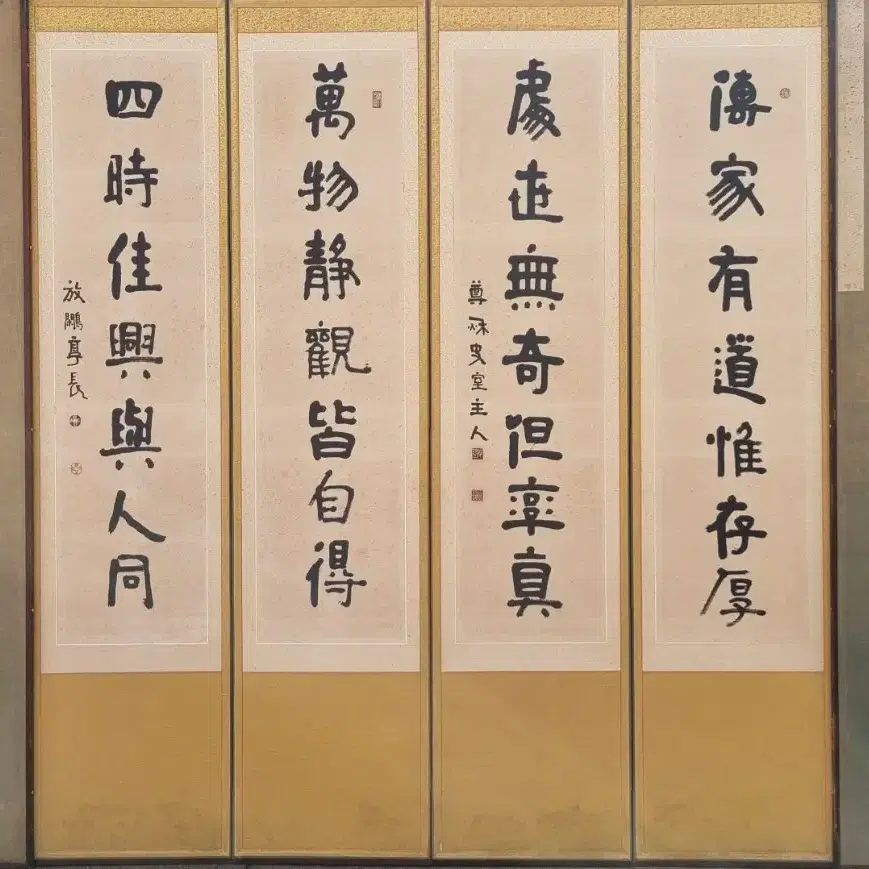 傳家有道惟存厚
處世無奇但率真
尊秌史室主人
萬物靜觀皆自得
四時佳興與人同
放鷳亭長